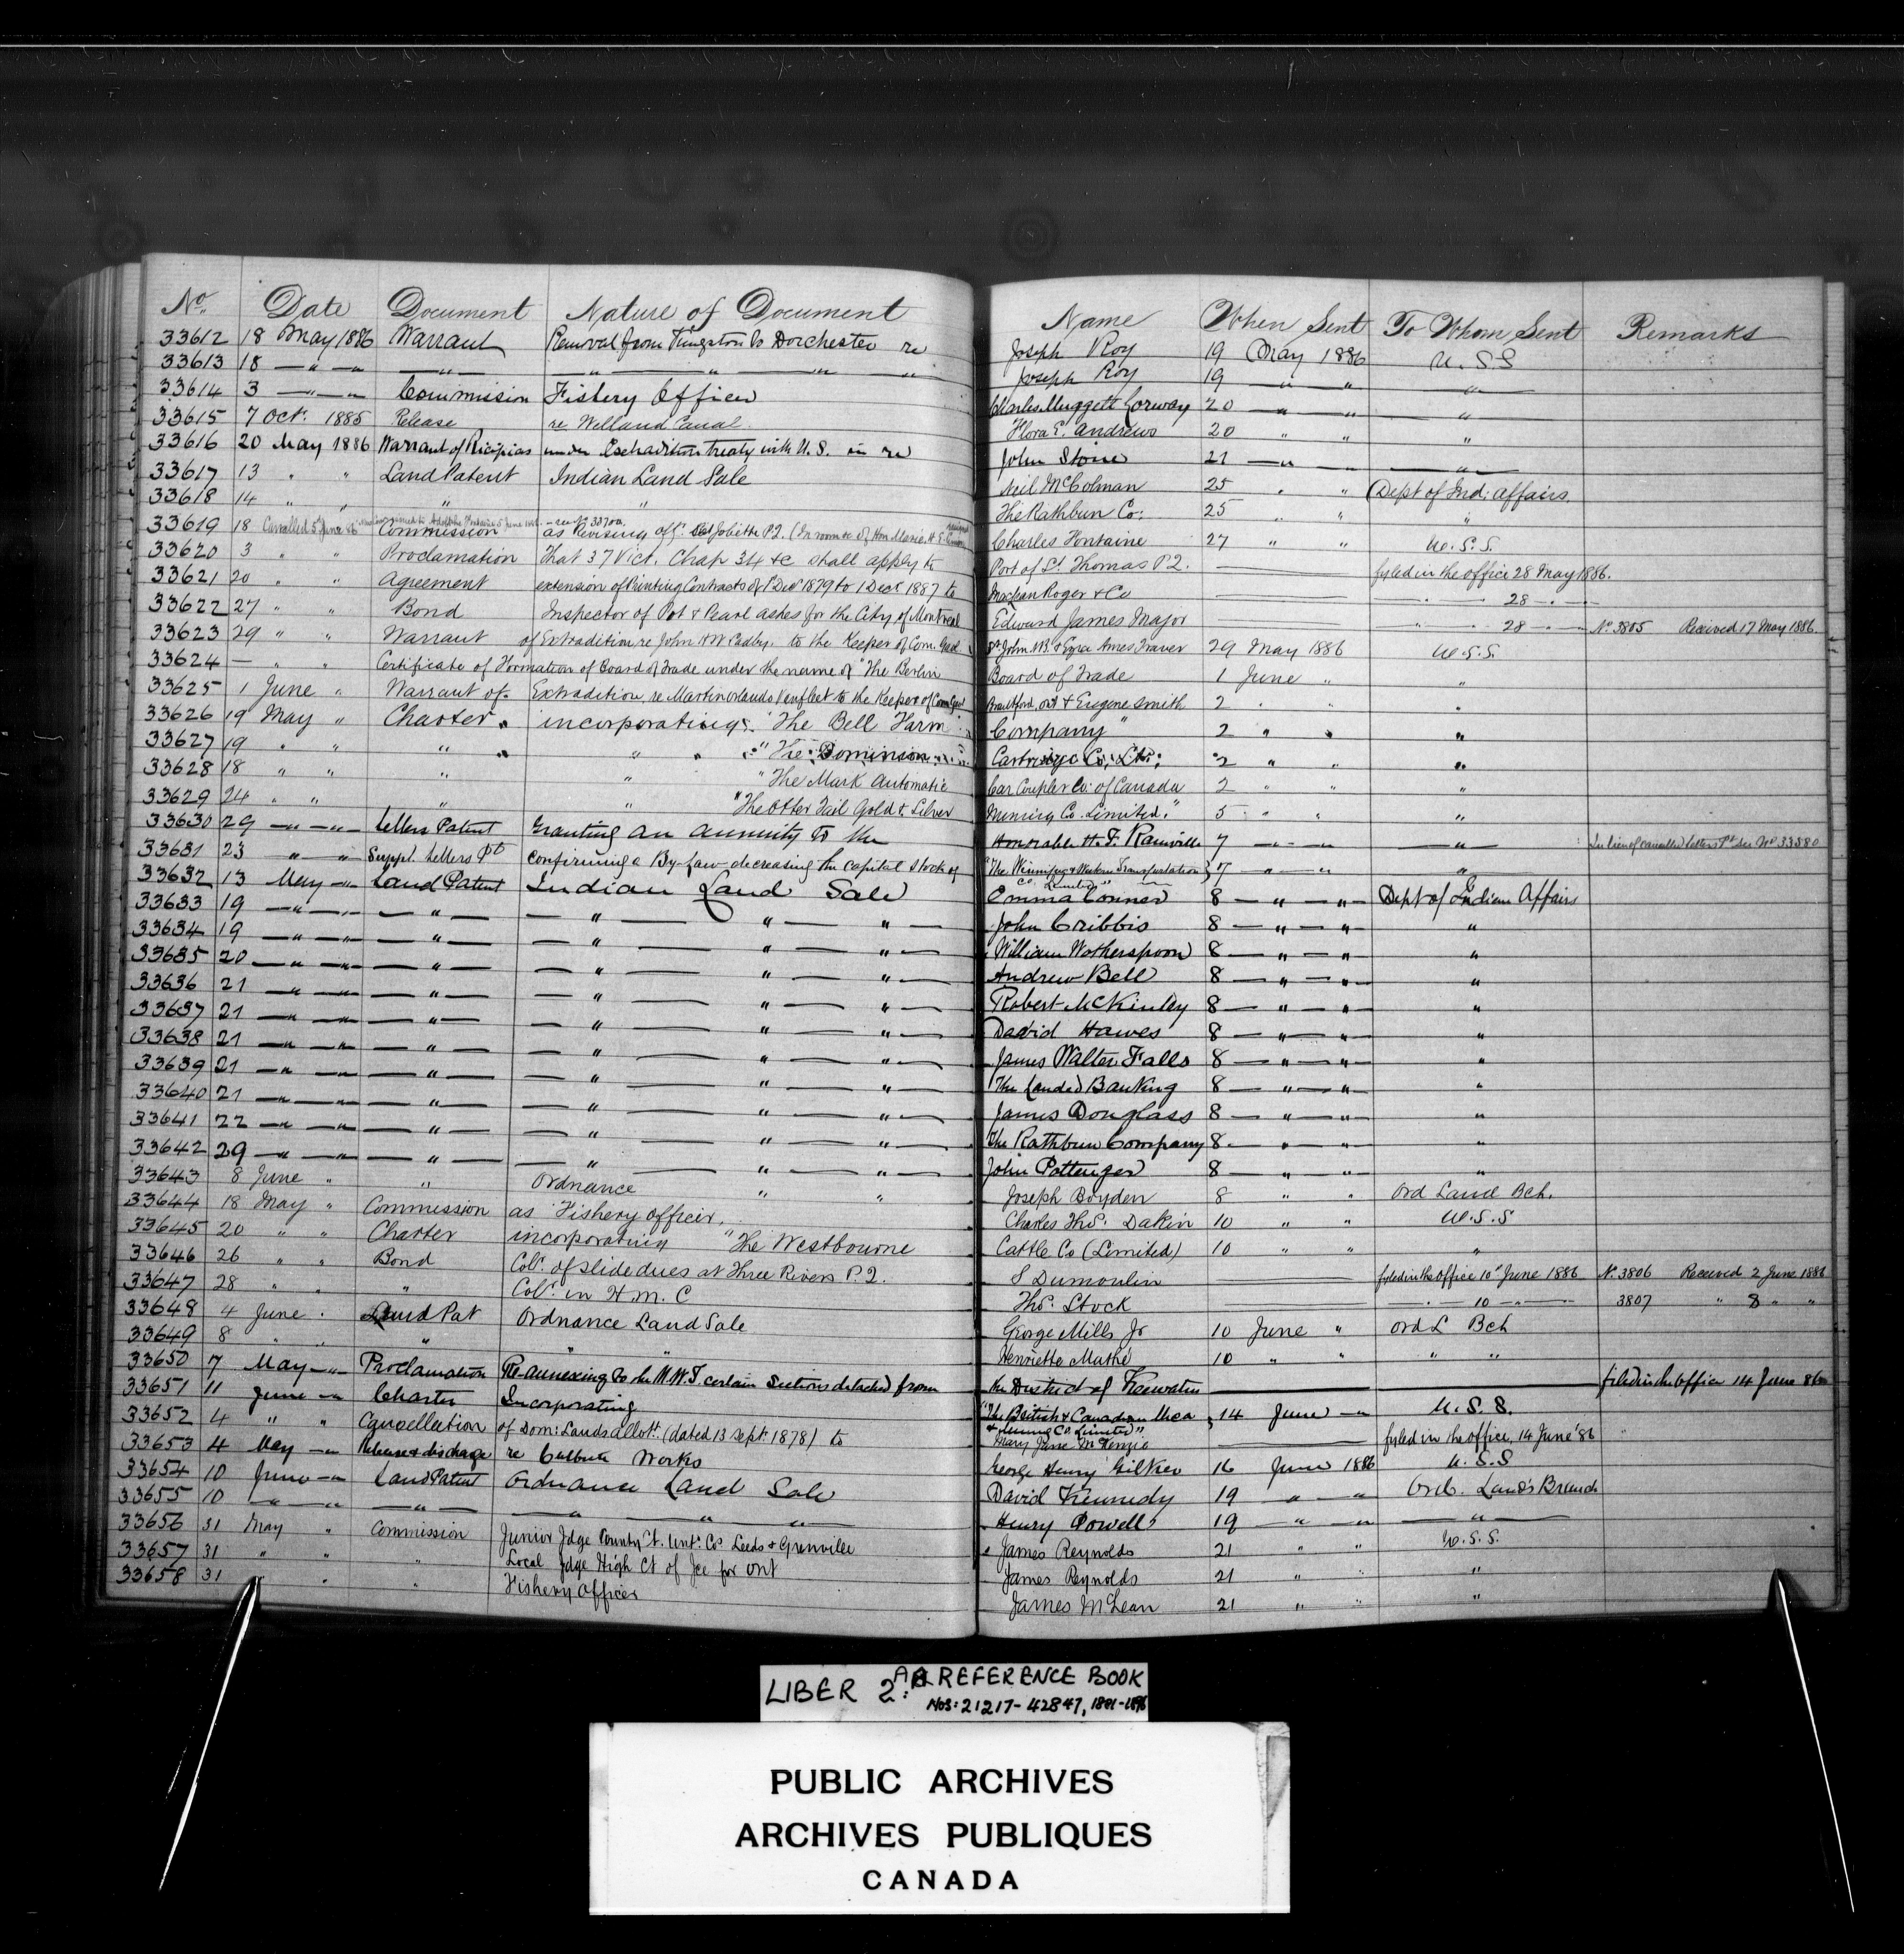 No. Date Document Nature of Document Name When Sent To Whom Sent Remarks
33612 18 May 1886 Warrant Removal from Kingston to Dorchester re Joseph Roy 19 May 1886 U.S.S
33613 18 — " — — " — — " — " " " Joseph Roy 19 — " — " "
33614 3 — " — Commission Fishery Officer Charles Muggett Corway 20 — " — " "
33615 7 Oct. 1885 Release re Welland Canal. Flora E. Andrews 20 " " "
33616 20 May 1886 Warrant of Recipias under Extradition treaty with U.S. in re John Stone 21 — " — " — " —
33617 13 " " Land Patent Indian Land Sale Neil McColman 25 " " Dept of Ind: Affairs.
33618 14 " " " " The Rathbun Co: 25 " " "
33619 18 Cancelled 5th June 86 Commission as Revising off: Joliette P.Q. (In room &c of Hon Charles Fontaine 27 " " U.S.S.
33620 3 " " Proclamation That 37 Vict. Chap 34 &c shall apply to Port of St. Thomas P.Q. — fyled in the office 28 May 1886.
33621 20 " " Agreement extension of Printing Contracts of 1 Dec 1879 to 1 Dec 1887 to Maclean Roger & Co — " 28 — " —
33622 27 " " Bond Inspector of Pot & Pearl ashes for the City of Montreal Edward James Major — " 28 — " — No. 3805 Received 17 May 1886.
33623 29 " " Warrant of Extradition re John & W. to the Keeper of Com. Gaol St. John N.B. & Ezra Ames Traver 29 May 1886 U.S.S.
33624 — " " Certificate of Formation of Board of Trade under the name of "The Berlin Board of Trade 1 June " "
33625 1 June " Warrant of Extradition, re to the Keeper of Com Gaol Brantford, Ont & Eugene Smith 2 " " "
33626 19 May " Charter incorporating "The Bell Farm Company" 2 " " "
33627 19 " " " " " "The Dominion Cartridge Co: Ltd: 2 " " "
33628 18 " " " " "The Mark Automatic Car Coupler Co: of Canada 2 " " "
33629 24 " " " " "The Otter Tail Gold & Silver Mining Co. Limited." 5 " " "
33630 29 — " — " — Letters Patent Granting an annuity to the Honorable H. F. Rainville 7 — " — " — " — In lieu of cancelled letters Pt. See No 33580
33631 23 " " Suppl. Letters Pt confirming a By-Law decreasing the capital stock of "The Winnipeg & Western Transportation Co. Limited" 7 — " — " "
33632 13 May — " Land Patent Indian Land Sale Emma Conner 8 — " — " — Dept of Indian Affairs
33633 19 — " — " — — " — — " — " — " — John Cribbis 8 — " — " — "
33634 19 — " — " — — " — — " — " — " — William Wotherspoon 8 — " — " — "
33635 20 — " — " — — " — — " — " — " — Andrew Bell 8 — " — " — "
33636 21 — " — " — — " — — " — " — " — Robert McKinley 8 — " — " — "
33637 21 — " — " — — " — — " — " — " — David Hawes 8 — " — " — "
33638 21 — " — " — — " — — " — " — " — James Walter Falls 8 — " — " — "
33639 21 — " — " — — " — — " — " — " — The Landed Banking 8 — " — " — "
33640 21 — " — " — — " — — " — " — " — James Douglass 8 — " — " — "
33641 22 — " — " — — " — — " — " — " — The Rathbun Company 8 — " — " — "
33642 29 — " — " — — " — — " — " — " — John Pottenger 8 — " — " — "
33643 8 June " " Ordnance " " Joseph Boyden 8 " " Ord Land Bch.
33644 18 May " Commission as Fishery officer. Charles Thos. Dakin 10 " " U.S.S
33645 20 " " Charter incorporating "The Westbourne Cattle Co (Limited) 10 " " "
33646 26 " " Bond Colr. of Slide dues at Three Rivers P.Q. S Dumoulin — fyled in the office 10" June 1886 No. 3806 Received 2 June 1886
33647 28 " " " Colr. in H.M.C Thos. Stock — " 10 — " — 3807 " 8 " "
33648 4 June " Land Pat Ordnance Land Sale George Mills Jr 10 June " Ord L Bch
33649 8 " " " " " Henriette Mathé 10 " " " "
33650 7 May — " Proclamation Re-annexing to the N.W.T. certain Sections detached from the District of Keewatin — filed in the office 14 June 86
33651 11 June — " Charter Incorporating "The British & Canadian Mica & Mining Co. Limited" 14 June — " U.S.S.
33652 4 " " Cancellation of Dom: Lands allott. (dated 13 Sept. 1878) to Mary Jane McKenzie — fyled in the office, 14 June '86
33653 4 May — " Release & discharge re Culbute Works George Henry Gilkes 16 June 1886 U.S.S
33654 10 June — " Land Patent Ordnance Land Sale David Kennedy 19 " — " Ord. Lands Branch
33655 10 — " — " — " — " " " Henry Powell 19 — " — " — " —
33656 31 May " Commission Junior Jdge County Ct. Untd. Cos Leeds & Grenville James Reynolds 21 " " U.S.S.
33657 31 " " " Local Jdge High Ct of Jce for Ont James Reynolds 21 " " "
33658 31 " " " Fishery Officer James McLean 21 " " "
LIBER 2A: REFERENCE BOOK
NOS: 21217-42847, 1881-1896
PUBLIC ARCHIVES
ARCHIVES PUBLIQUES
CANADA